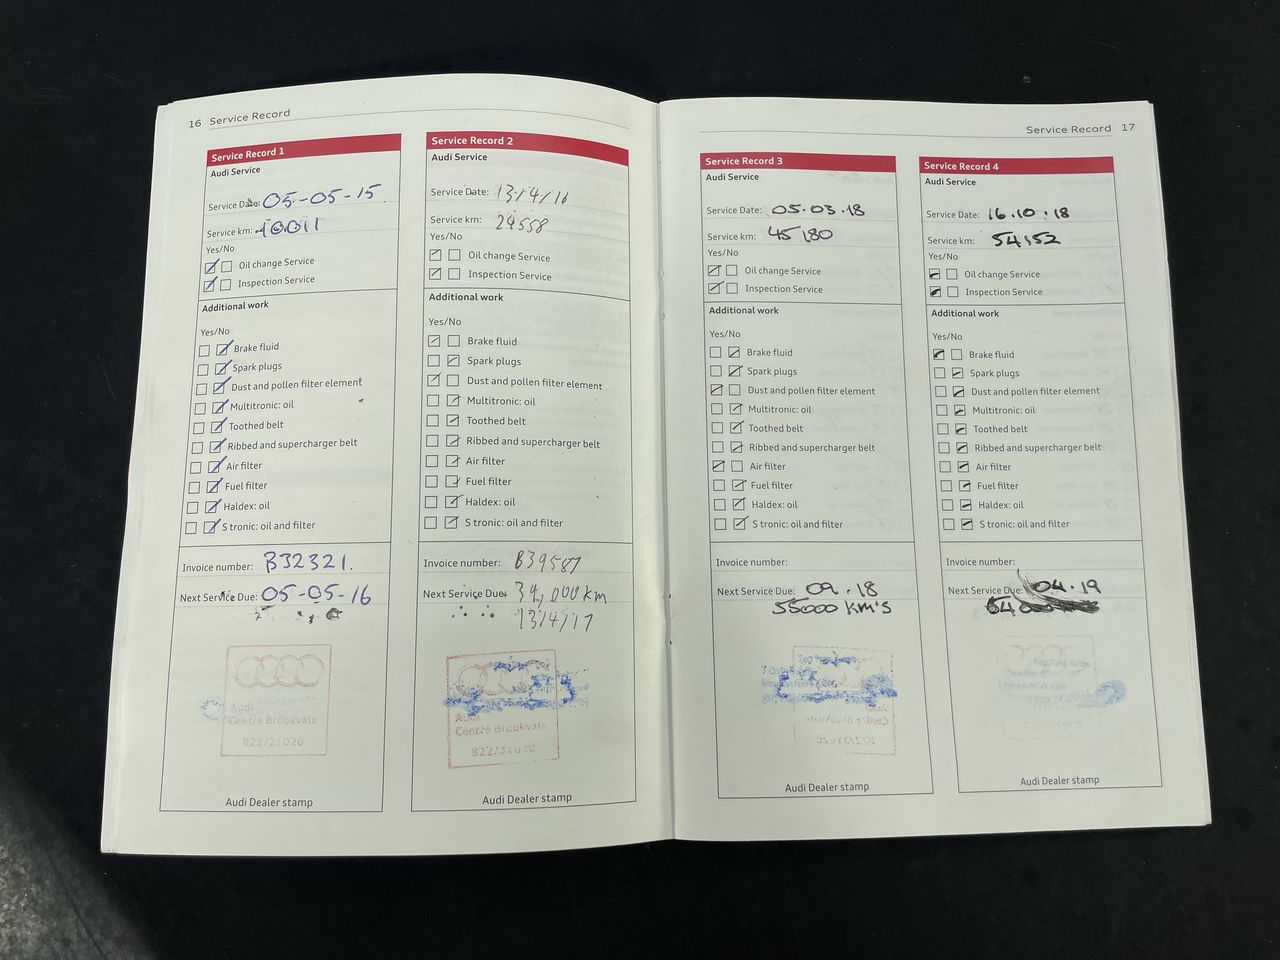 16 Service Record
Service Record 1
Audi Service
Service Date: 05-05-15
Service km: 10011
Yes/No
Oil change Service
Inspection Service
Additional work
Yes/No
Brake fluid
Spark plugs
Dust and pollen filter element
Multitronic: oil
Toothed belt
Ribbed and supercharger belt
Air filter
Fuel filter
Haldex: oil
S tronic: oil and filter
Invoice number: B32321.
Next Service Due: 05-05-16
Audi
Centre Brookvale
822/21020
Audi Dealer stamp
Service Record 2
Audi Service
Service Date: 13/4/16
Service km: 24558
Yes/No
Oil change Service
Inspection Service
Additional work
Yes/No
Brake fluid
Spark plugs
Dust and pollen filter element
Multitronic: oil
Toothed belt
Ribbed and supercharger belt
Air filter
Fuel filter
Haldex: oil
S tronic: oil and filter
Invoice number: B39587
Next Service Due: 39,000 km
13/4/17
Audi
Centre Brookvale
822/21020
Audi Dealer stamp
Service Record 17
Service Record 3
Audi Service
Service Date: 05.03.18
Service km: 45180
Yes/No
Oil change Service
Inspection Service
Additional work
Yes/No
Brake fluid
Spark plugs
Dust and pollen filter element
Multitronic: oil
Toothed belt
Ribbed and supercharger belt
Air filter
Fuel filter
Haldex: oil
S tronic: oil and filter
Invoice number:
Next Service Due: 09.18
55000 KM'S
Audi Dealer stamp
Service Record 4
Audi Service
Service Date: 16.10.18
Service km: 54152
Yes/No
Oil change Service
Inspection Service
Additional work
Yes/No
Brake fluid
Spark plugs
Dust and pollen filter element
Multitronic: oil
Toothed belt
Ribbed and supercharger belt
Air filter
Fuel filter
Haldex: oil
S tronic: oil and filter
Invoice number:
Next Service Due: 04.19
Audi Dealer stamp